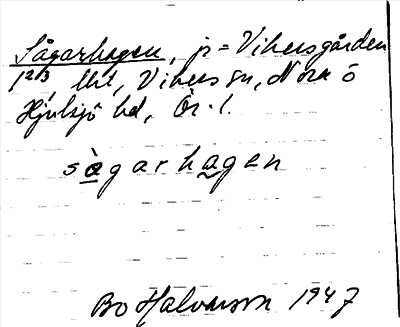 Sågarhagen, p = Vikersgården
1 2/3 mt, Vikers sn, Nora o
Hjulsjö hd, Ör. l.
sàgarhagen
Bo Halvarson 1947